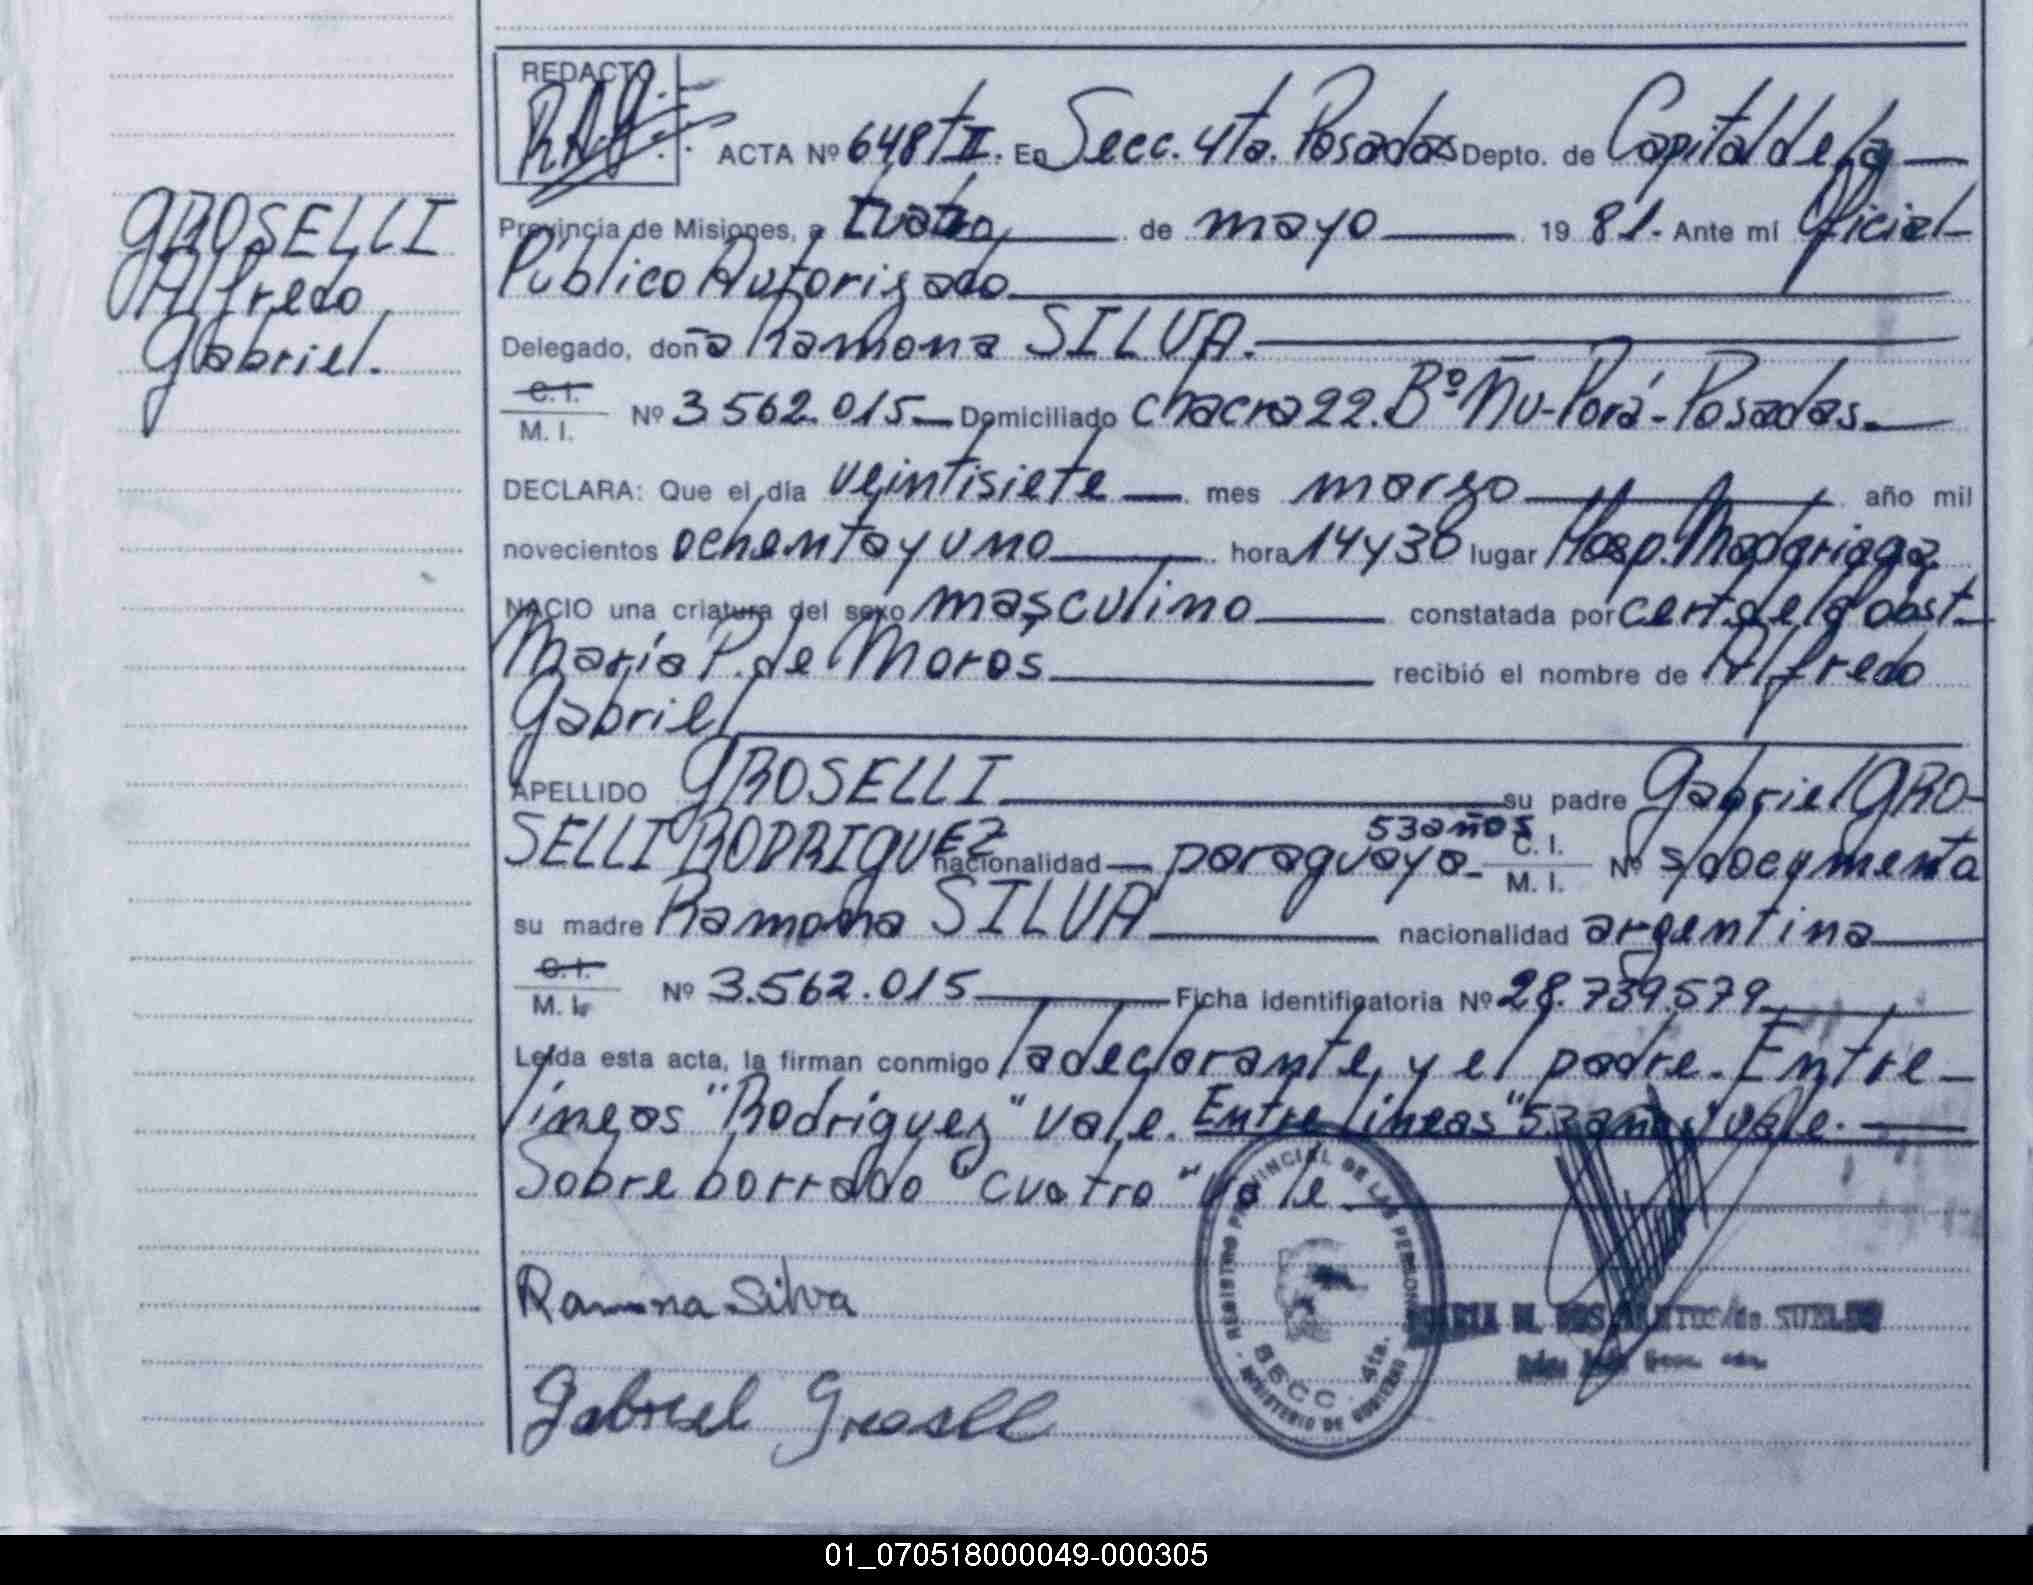 REDACTO
ACTA Nº 648 t II. En Secc. 4ta. Posadas Depto. de Capital de la
GROSELLI
Alfredo
Gabriel.
Provincia de Misiones, a cuatro de mayo 19 81.- Ante mí Oficial
Público Autorizado
Delegado, doña Ramona SILVA.
C. I.
M. I. Nº 3 562.015 Domiciliado chacra 22. Bº Ñu-Porá - Posadas.
DECLARA: Que el día veintisiete mes marzo año mil
novecientos ochenta y uno hora 14 y 30 lugar Hosp. Madariaga
NACIO una criatura del sexo masculino constatada por cert. de la obst.
María P. de Moros recibió el nombre de Alfredo
Gabriel
APELLIDO GROSELLI su padre Gabriel GRO-
SELLI RODRIGUEZ nacionalidad paraguaya 53 años C. I. M. I. Nº s/documento
su madre Ramona SILVA nacionalidad argentina
C. I.
M. I. Nº 3.562.015 Ficha identificatoria Nº 28.739.579
Leída esta acta, la firman conmigo la declarante y el padre. Entre
líneas "Rodríguez" vale. Entre líneas "53 años" vale.
Sobre borrado "cuatro" vale
Ramona Silva
REGISTRO PROVINCIAL DE LAS PERSONAS
SECC. 4ta.
MINISTERIO DE GOBIERNO
Gabriel Groselli
01_070518000049-000305